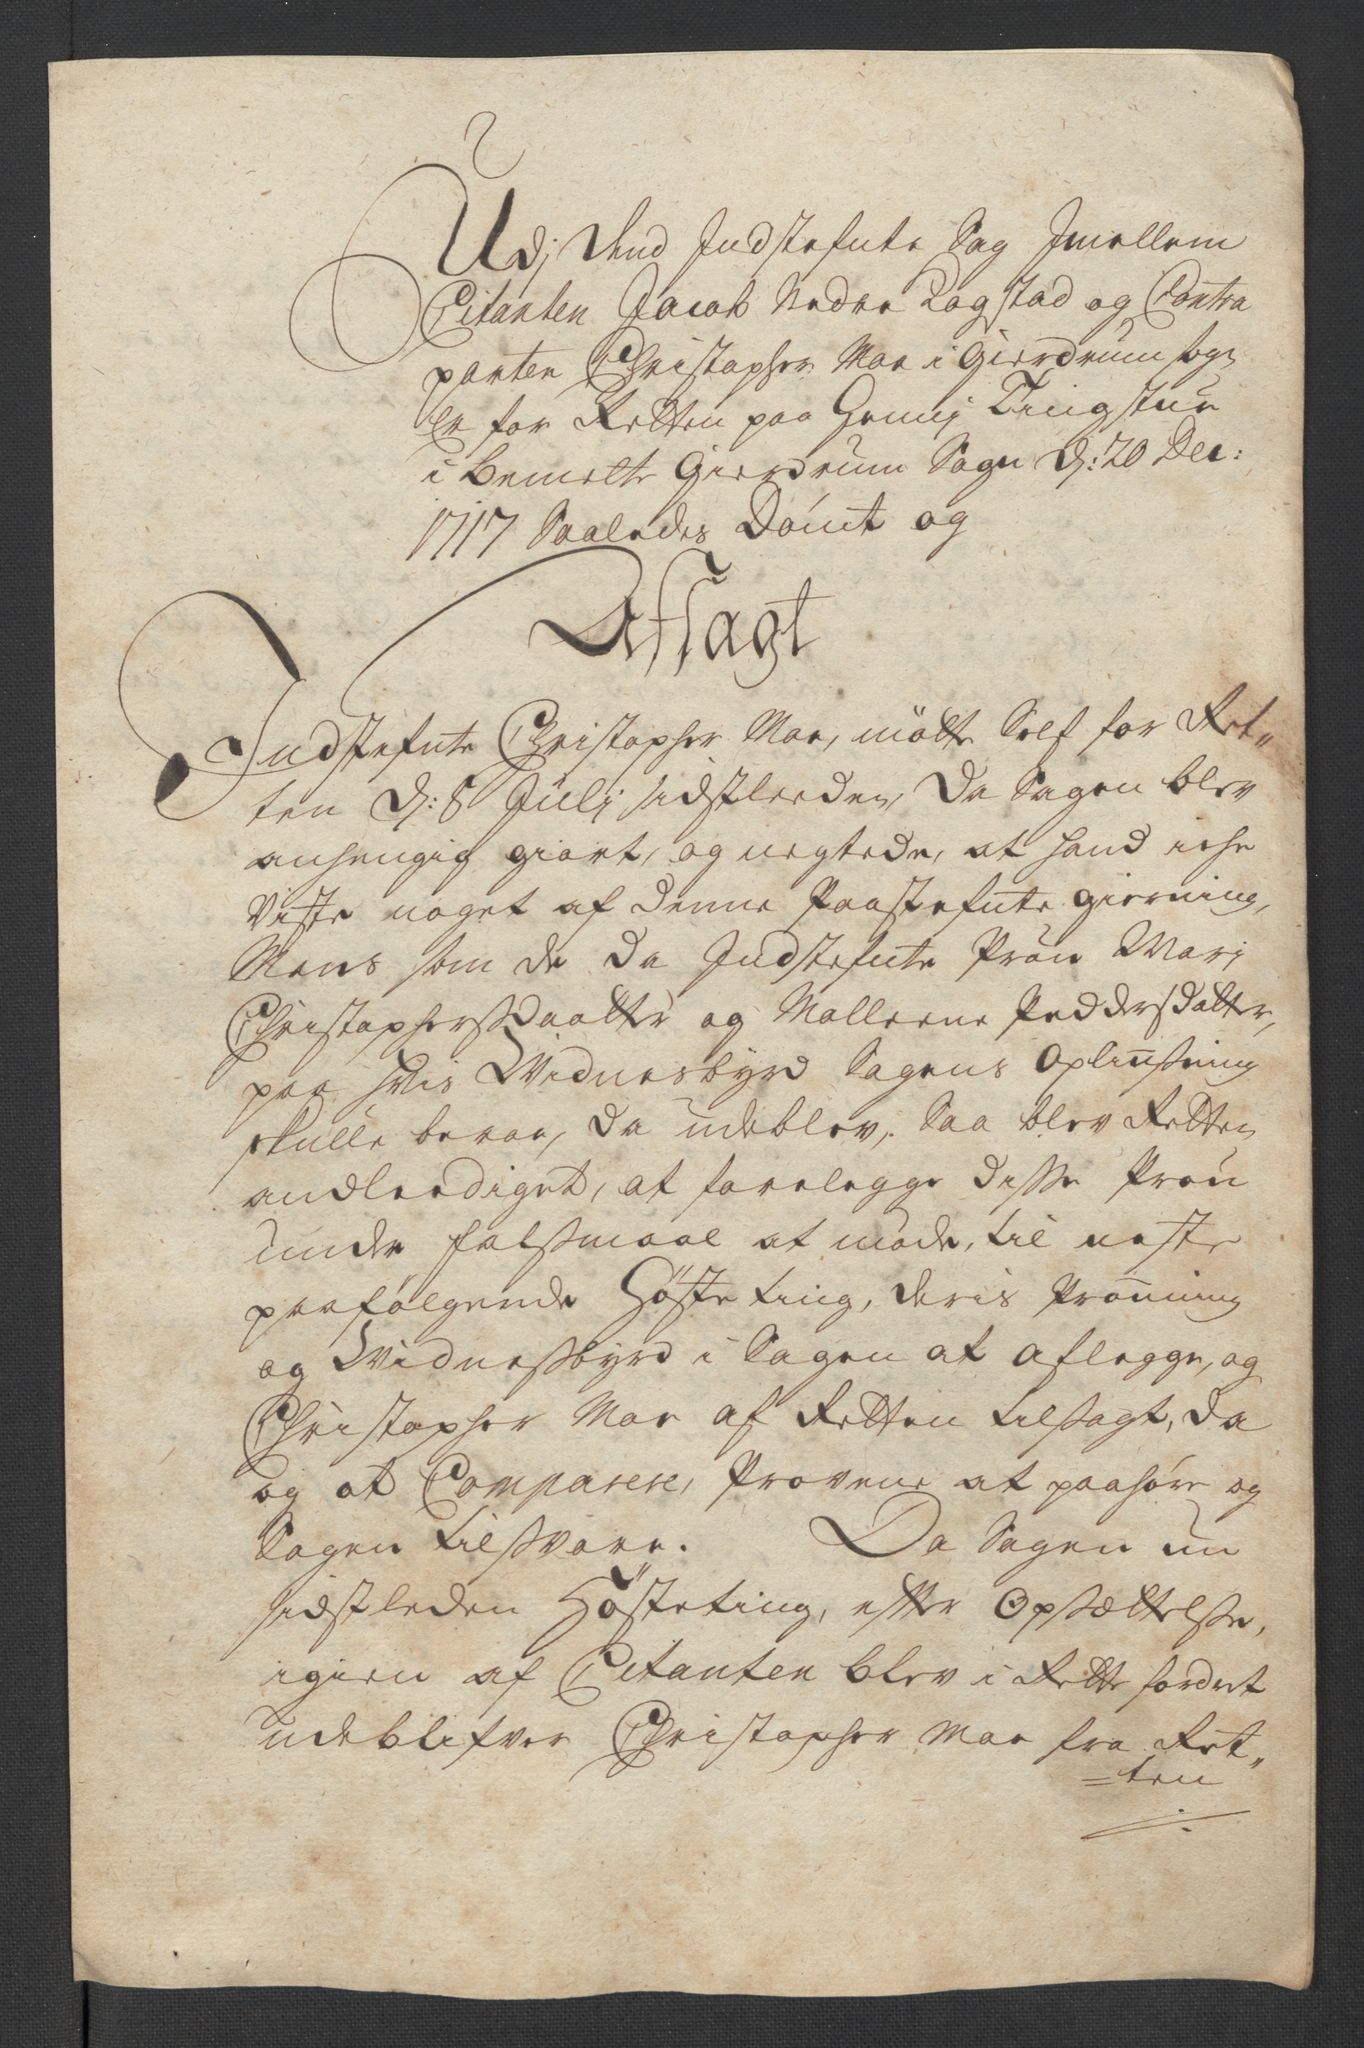 Udj dend Indstefnte Sag Imellem
Citanten Jacob Nedre Rogstad og Contra
parten Christopher Moe i Gierdrum sogn
er for Retten paa Hennj Tingstue
i bemelte Gierdrum Sogn d: 20 Dec:
1717 Saaledes Dömt og
Afsagt
Indstefnte Christopher Moe, mötte Self for Ret„
ten d: 8 Julj sidstleeden, Da Sagen blev
anhengig giort, og negtede, at hand iche
Viste noget af denne Paastefnte gierning,
Mens som de da Indstefnte Prou Marj
Christophersdaatter og Malleene Peddersdatter,
paa hvis Widnesbyrd Sagens Opliusning
skulle beroe, da udeblev, Saa blev Retten
andleediget, at forelegge disse Prou
under falsmaal at möde, til neste
paafölgende Höste ting, deris Prouning
og Widnesbyrd i Sagen at aflegge, og
Christopher Moe af Retten tilsagt, da
og at Comparere, Provene at paahöre og
Sagen tilsvare. Da Sagen nu
sidstleden Hösteting, efter Opsættelse,
igien af Citanten blev i Rette fordret
udeblifver Christopher Moe fra Ret„
=ten